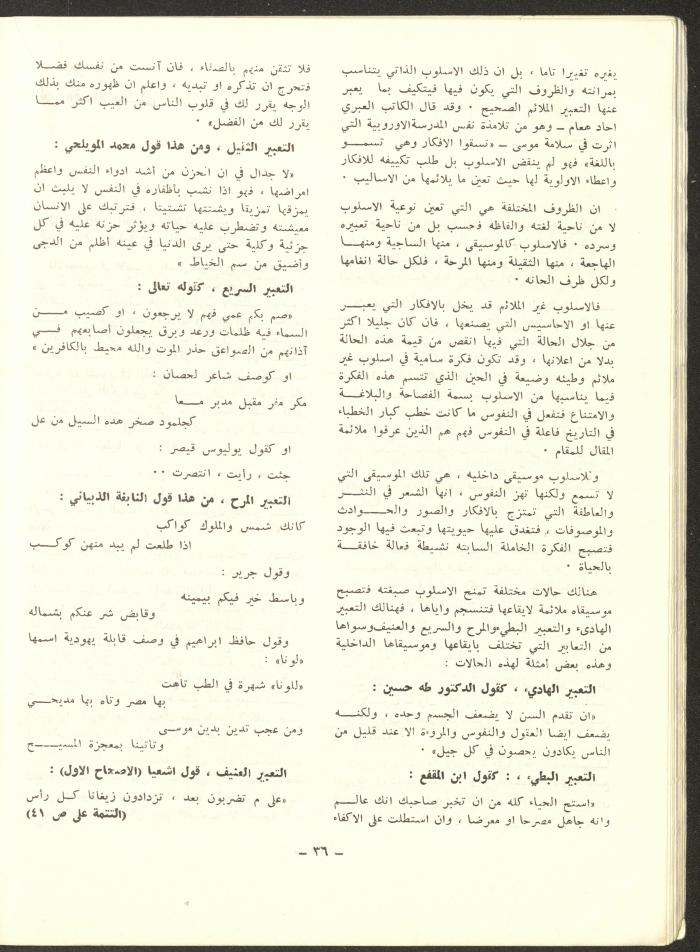 يغيره تغييرا تاما ، بل ان ذلك الاسلوب الذاتي يتناسب
بمرانته والظروف التي يكون فيها فيتكيف بما يعبر
عنها التعبير الملائم الصحيح . وقد قال الكاتب العبري
احاد هعام ــ وهو من تلامذة نفس المدرسة الاوروبية التي
اثرت في سلامة موسى ــ «نسقوا الافكار وهي تسمــو
باللغة» فهو لم ينقض الاسلوب بل طلب تكييفه للافكار
واعطاء الاولوية لها حيث تعين ما يلائمها من الاساليب .
ان الظروف المختلفة هي التي تعين نوعية الاسلوب
لا من ناحية لغته والفاظه فحسب بل من ناحية تعبيره
وسرده . فالاسلوب كالموسيقى ، منها الساجية ومنهــا
الهاجعة ، منها الثقيلة ومنها المرحة ، فلكل حالة انغامها
ولكل ظرف الحانه .
فالاسلوب غير الملائم قد يخل بالافكار التي يعبــر
عنها او الاحاسيس التي يصنعها ، فان كان جليلا اكثر
من جلال الحالة التي فيها انقص من قيمة هذه الحالة
بدلا من اعلانها ، وقد تكون فكرة سامية في اسلوب غير
ملائم وطيئه وضيعة في الحين الذي تتسم هذه الفكرة
فيما يناسبها من الاسلوب بسمة الفصاحة والبلاغــة
والامتناع فتفعل في النفوس ما كانت خطب كبار الخطباء
في التاريخ فاعلة في النفوس فهم هم الذين عرفوا ملائمة
المقال للمقام .
وللاسلوب موسيقى داخليه ، هي تلك الموسيقى التي
لا تسمع ولكنها تهز النفوس ، انها الشعر في النثــر
والعاطفة التي تمتزج بالافكار والصور والحــوادث
والموصوفات ، فتغدق عليها حيويتها وتبعث فيها الوجود
فتصبح الفكرة الخاملة السابته نشيطة فعالة خافقــة
بالحياة .
هنالك حالات مختلفة تمنح الاسلوب صبغته فتصبح
موسيقاه ملائمة لايقاعها فتنسجم واياها ، فهنالك التعبير
الهادىء والتعبير البطيء والمرح والسريع والعنيف وسواها
من التعابير التي تختلف بايقاعها وموسيقاها الداخلية
وهذه بعض أمثلة لهذه الحالات :
التعبير الهاديء ، كقول الدكتور طه حسين :
«ان تقدم السن لا يضعف الجسم وحده ، ولكنــه
يضعف ايضا العقول والنفوس والمروءة الا عند قليل من
الناس يكادون يحصون في كل جيل» .
التعبير البطيء ، : كقول ابن المقفع :
«استح الحياء كله من ان تخبر صاحبك انك عالــم
وانه جاهل مصرحا او معرضا ، وان استطلت على الاكفاء
فلا تثقن منهم بالصفاء ، فان آنست من نفسك فضــلا
فتحرج ان تذكره او تبديه ، واعلم ان ظهوره منك بذلك
الوجه يقرر لك في قلوب الناس من العيب اكثر ممــا
يقرر لك من الفضل» .
التعبير الثقيل ، ومن هذا قول محمد المويلحي :
«لا جدال في ان الحزن من أشد ادواء النفس واعظم
امراضها ، فهو اذا نشب بأظفاره في النفس لا يلبث ان
يمزقها تمزيقا ويشتتها تشتيتا ، فترتبك على الانسان
معيشته وتضطرب عليه حياته ويؤثر حزنه عليه في كل
جزئية وكلية حتى يرى الدنيا في عينه أظلم من الدجى
وأضيق من سم الخياط »
التعبير السريع ، كقوله تعالى :
«صم بكم عمي فهم لا يرجعون ، او كصيب مــن
السماء فيه ظلمات ورعد وبرق يجعلون أصابعهم فــي
آذانهم من الصواعق حذر الموت والله محيط بالكافرين »
او كوصف شاعر لحصان :
مكر مفر مقبل مدبر معــا
كجلمود صخر هده السيل من عل
او كقول يوليوس قيصر :
جئت ، رأيت ، انتصرت ..
التعبير المرح ، من هذا قول النابغة الذبياني :
كانك شمس والملوك كواكب
اذا طلعت لم يبد منهن كوكــب
وقول جرير :
وباسط خير فيكم بيمينه
وقابض شر عنكم بشماله
وقول حافظ ابراهيم في وصف قابلة يهودية اسمها
«لونا» :
«للونا» شهرة في الطب تاهت
بها مصر وتاه بها مديحــي
ومن عجب تدين بدين موسـى
وتاتينا بمعجزة المسيــح
التعبير العنيف ، قول اشعيا (الاصحاح الاول) :
«على م تضربون بعد ، تزدادون زيغانا كــل رأس
(التتمة على ص ٤١)
– ٣٦ –